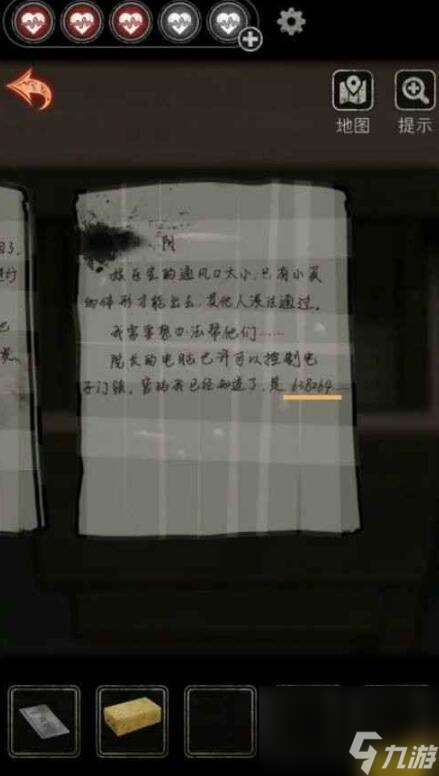 地图
提示
院
放区里的通风口太小,只有小英
的体形才能出去,其他人没法通过。
我需要想办法帮他们……
院长的电脑也许可以控制电
子门锁,密码我已经知道了,是638264
九游